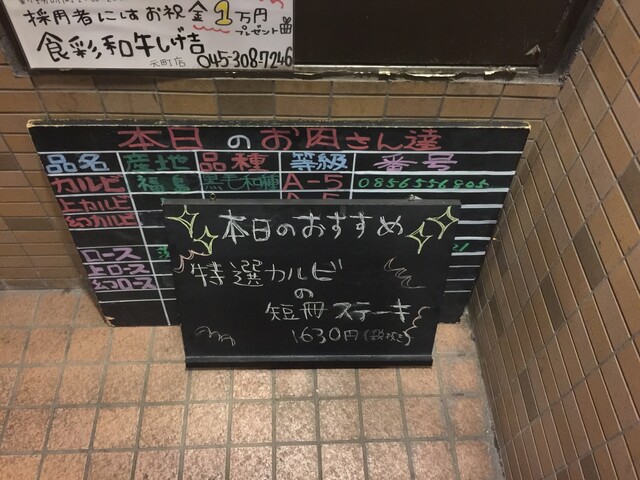 採用者にはお祝金1万円
プレゼント
食彩和牛しげ吉
元町店
045-308-7246
本日のお肉さん達
品名 産地 品種 等級 番号
カルビ 福島 黒毛和種 A-5 0856556805
上カルビ
幻カルビ
ロース
上ロース
幻ロース
本日のおすすめ
特選カルビ
の
短冊ステーキ
1630円(税抜き)